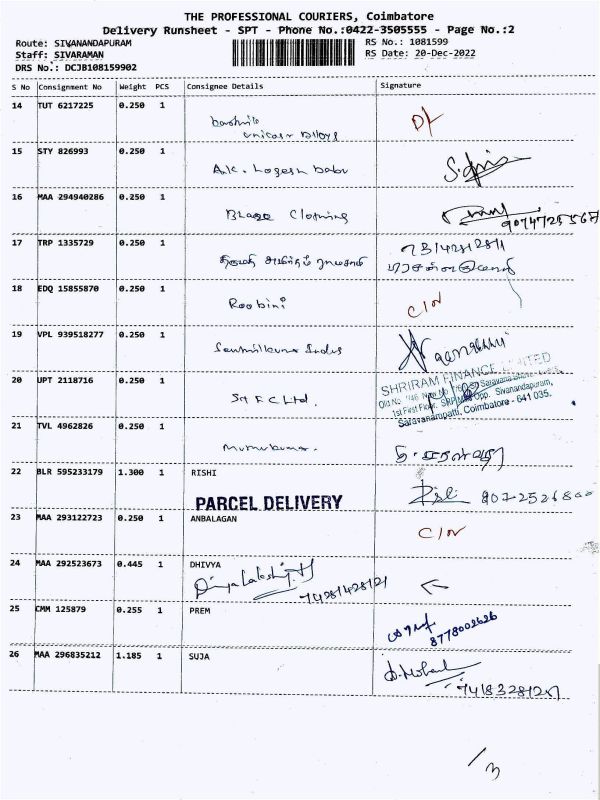 THE PROFESSIONAL COURIERS, Coimbatore
Delivery Runsheet - SPT - Phone No.:0422-3505555 - Page No.:2
Route: SIVANANDAPURAM RS No.: 1081599
Staff: SIVARAMAN RS Date: 20-Dec-2022
DRS No.: DCJB108159902
S No Consignment No Weight PCS Consignee Details Signature
14 TUT 6217225 0.250 1
Unicorn Alloys
15 STY 826993 0.250 1
A.K. Logesh babu
16 MAA 294940286 0.250 1
Blaze Clothing
9074725567
17 TRP 1335729 0.250 1
18 EDQ 15855870 0.250 1
Roobini
19 VPL 939518277 0.250 1
Senthilkumar Indus
20 UPT 2118716 0.250 1
SHRIRAM FINANCE LIMITED
1st First Floor, Opp. Sivanandapuram,
Saravanampatti, Coimbatore - 641 035.
21 TVL 4962826 0.250 1
Muthukumar.
22 BLR 595233179 1.300 1 RISHI
PARCEL DELIVERY
23 MAA 293122723 0.250 1 ANBALAGAN
24 MAA 292523673 0.445 1 DHIVYA
25 CMM 125879 0.255 1 PREM
8778002626
26 MAA 296835212 1.185 1 SUJA